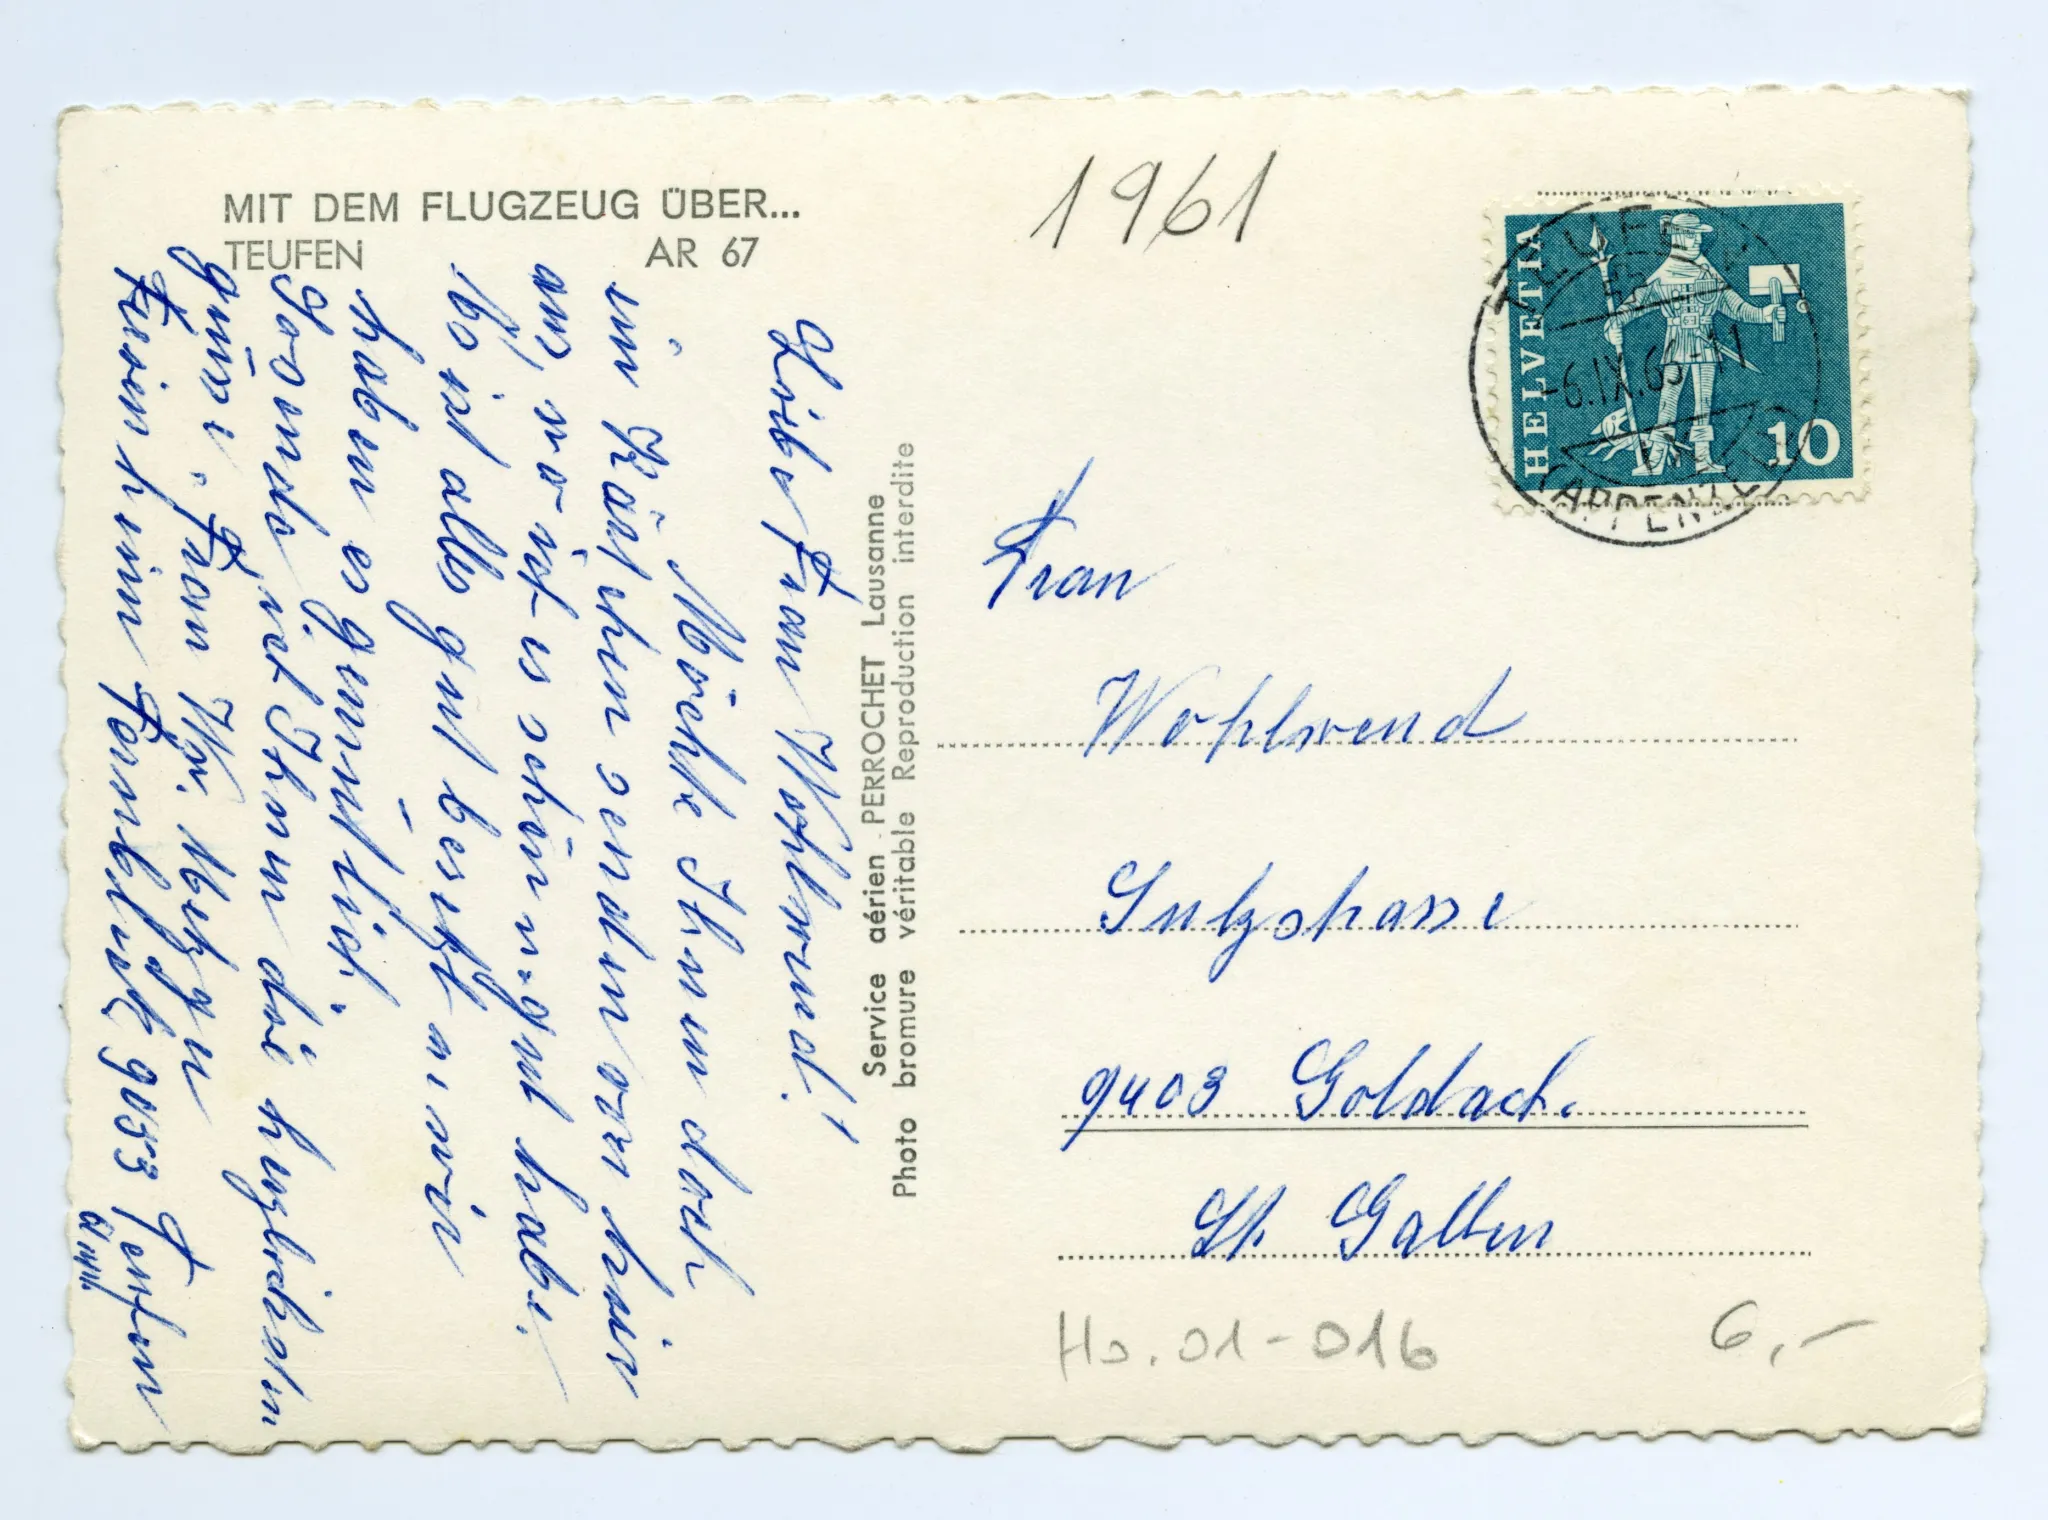 MIT DEM FLUGZEUG ÜBER...
TEUFEN AR 67
Liebe Frau Wohlwend!
Möchte Ihnen doch
ein Kärtchen senden von hier
aus, wo ich es schön u. gut habe.
Es ist alles gut besetzt u. wir
haben es gemütlich.
Gesunde ist Ihnen die herzlichsten
Grüsse, Frau Wwe.
Ferienheim Fernblick 9053 Teufen
Service aérien - PERROCHET Lausanne
Photo bromure véritable Reproduction interdite
1961
HELVETIA
10
TEUFEN
-6.IX.66-11
(APPENZELL)
Frau
Wohlwend
Sulzstrasse
9403 Goldach.
St. Gallen
Ho. 01-016
6,-